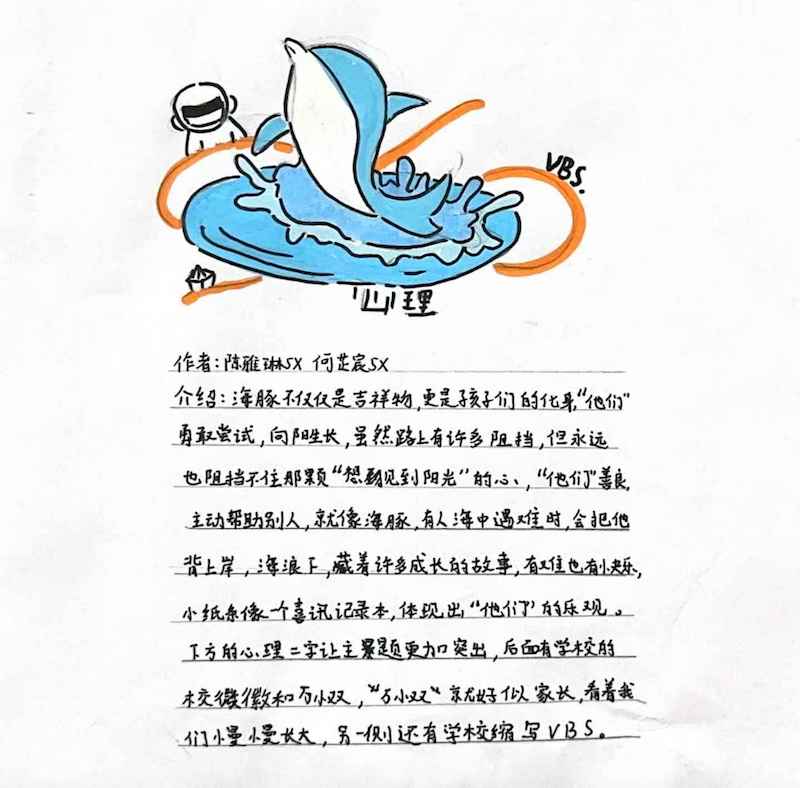 VBS.
心理
作者：陈雅琳5X 何芷宸5X
介绍：海豚不仅仅是吉祥物，更是孩子们的化身，“他们”
勇敢尝试，向阳生长，虽然路上有许多阻挡，但永远
也阻挡不住那颗“想要见到阳光”的心、，“他们”善良，
主动帮助别人，就像海豚，有人海中遇难时，会把他
背上岸，海浪下，藏着许多成长的故事，有难也有小快乐，
小纸条像一个喜讯记录本，体现出“他们”的乐观。
下方的心理二字让主题更加突出，后面有学校的
校徽和万小双，“万小双”就好似家长，看着我
们慢慢长大，另一侧还有学校缩写VBS。